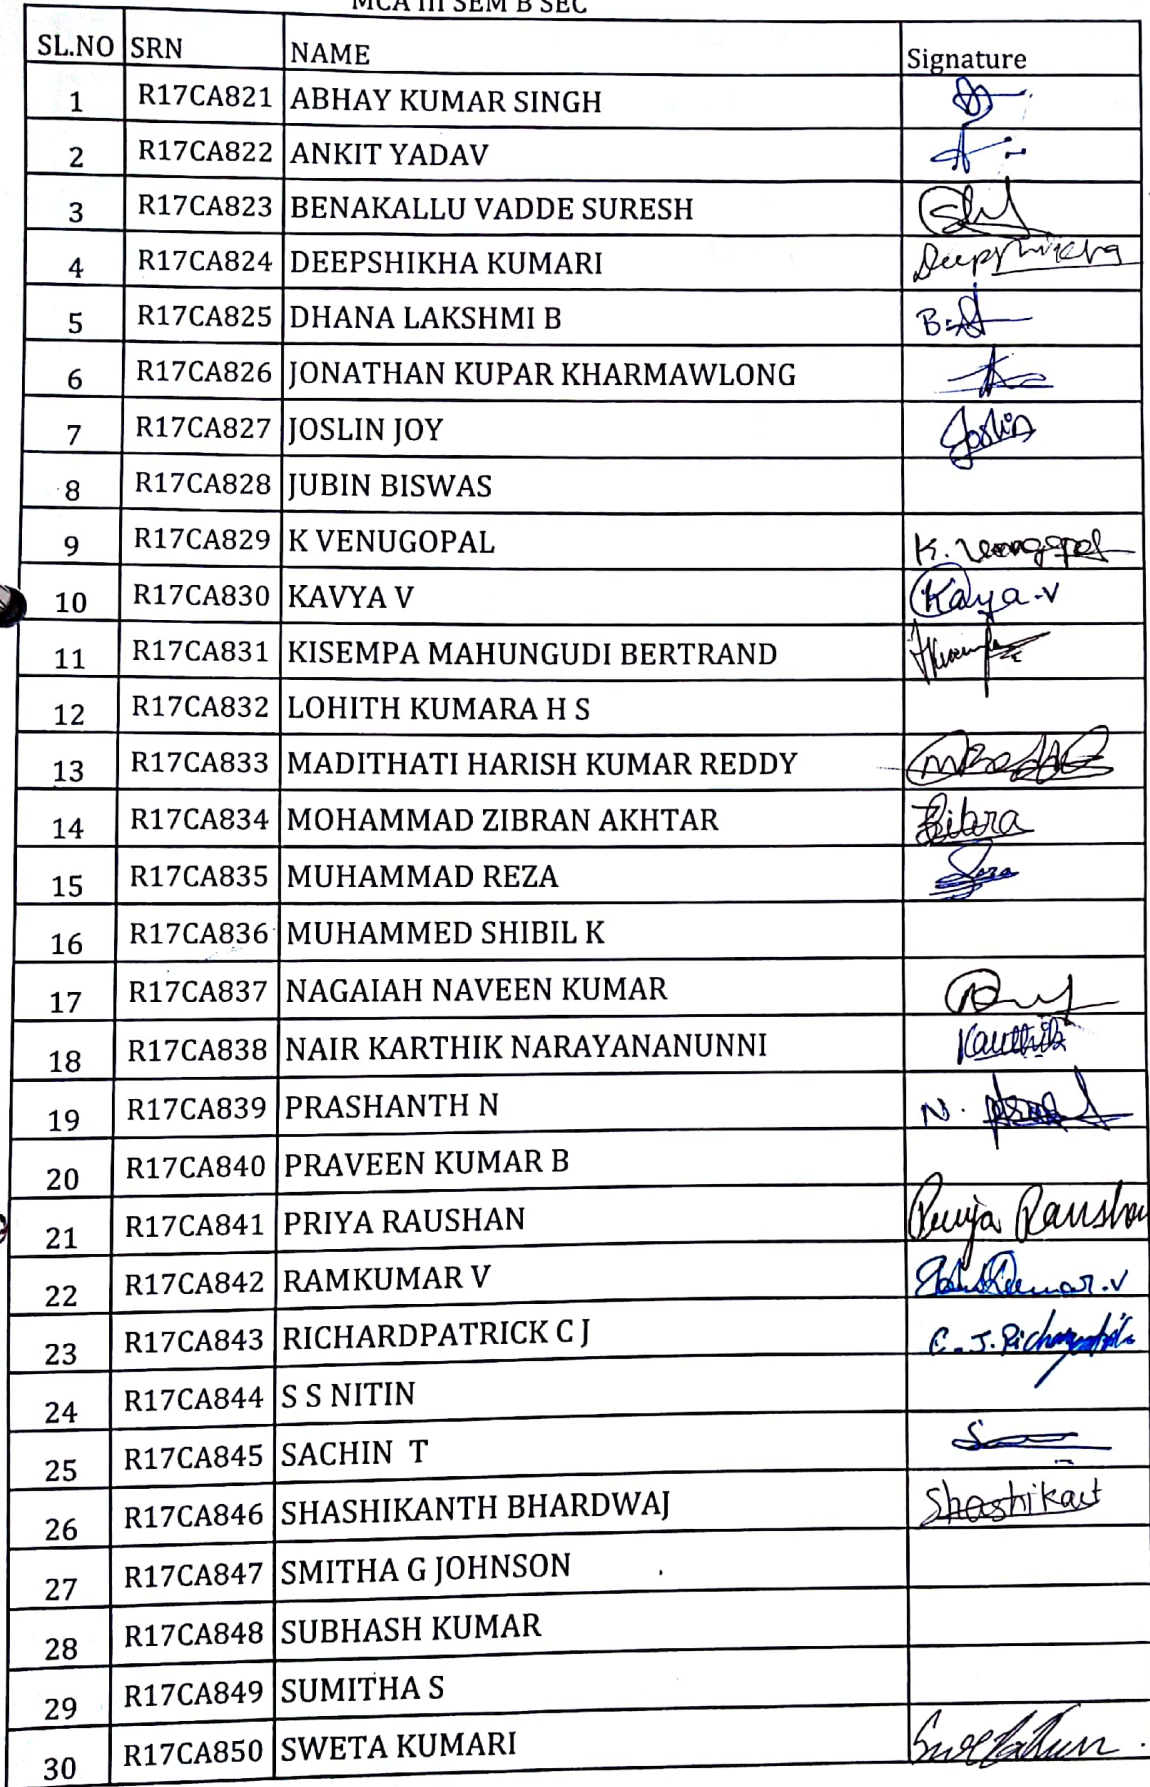 MCA III SEM B SEC
SL.NO SRN NAME Signature
1 R17CA821 ABHAY KUMAR SINGH
2 R17CA822 ANKIT YADAV
3 R17CA823 BENAKALLU VADDE SURESH
4 R17CA824 DEEPSHIKHA KUMARI Deepshikha
5 R17CA825 DHANA LAKSHMI B
6 R17CA826 JONATHAN KUPAR KHARMAWLONG
7 R17CA827 JOSLIN JOY Joslin
8 R17CA828 JUBIN BISWAS
9 R17CA829 K VENUGOPAL K. Venugopal
10 R17CA830 KAVYA V Kavya.V
11 R17CA831 KISEMPA MAHUNGUDI BERTRAND
12 R17CA832 LOHITH KUMARA H S
13 R17CA833 MADITHATI HARISH KUMAR REDDY
14 R17CA834 MOHAMMAD ZIBRAN AKHTAR
15 R17CA835 MUHAMMAD REZA
16 R17CA836 MUHAMMED SHIBIL K
17 R17CA837 NAGAIAH NAVEEN KUMAR
18 R17CA838 NAIR KARTHIK NARAYANANUNNI Karthik
19 R17CA839 PRASHANTH N N.
20 R17CA840 PRAVEEN KUMAR B
21 R17CA841 PRIYA RAUSHAN Priya Raushan
22 R17CA842 RAMKUMAR V
23 R17CA843 RICHARDPATRICK C J C. J.
24 R17CA844 S S NITIN
25 R17CA845 SACHIN T
26 R17CA846 SHASHIKANTH BHARDWAJ Shashikant
27 R17CA847 SMITHA G JOHNSON
28 R17CA848 SUBHASH KUMAR
29 R17CA849 SUMITHA S
30 R17CA850 SWETA KUMARI